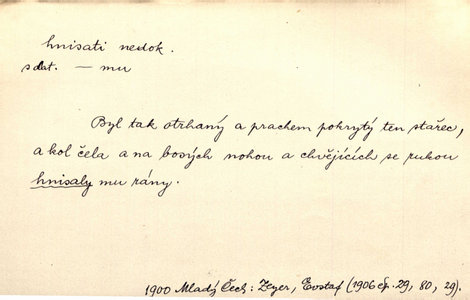 hnisati nedok.
s dat. — mu
Byl tak otrhaný a prachem pokrytý ten stařec,
a kol čela a na bosých nohou a chvějících se rukou
hnisaly mu rány.
1900 Mladý Čech: Zeyer, Eustaf (1906 sp. 29, 80, 29).